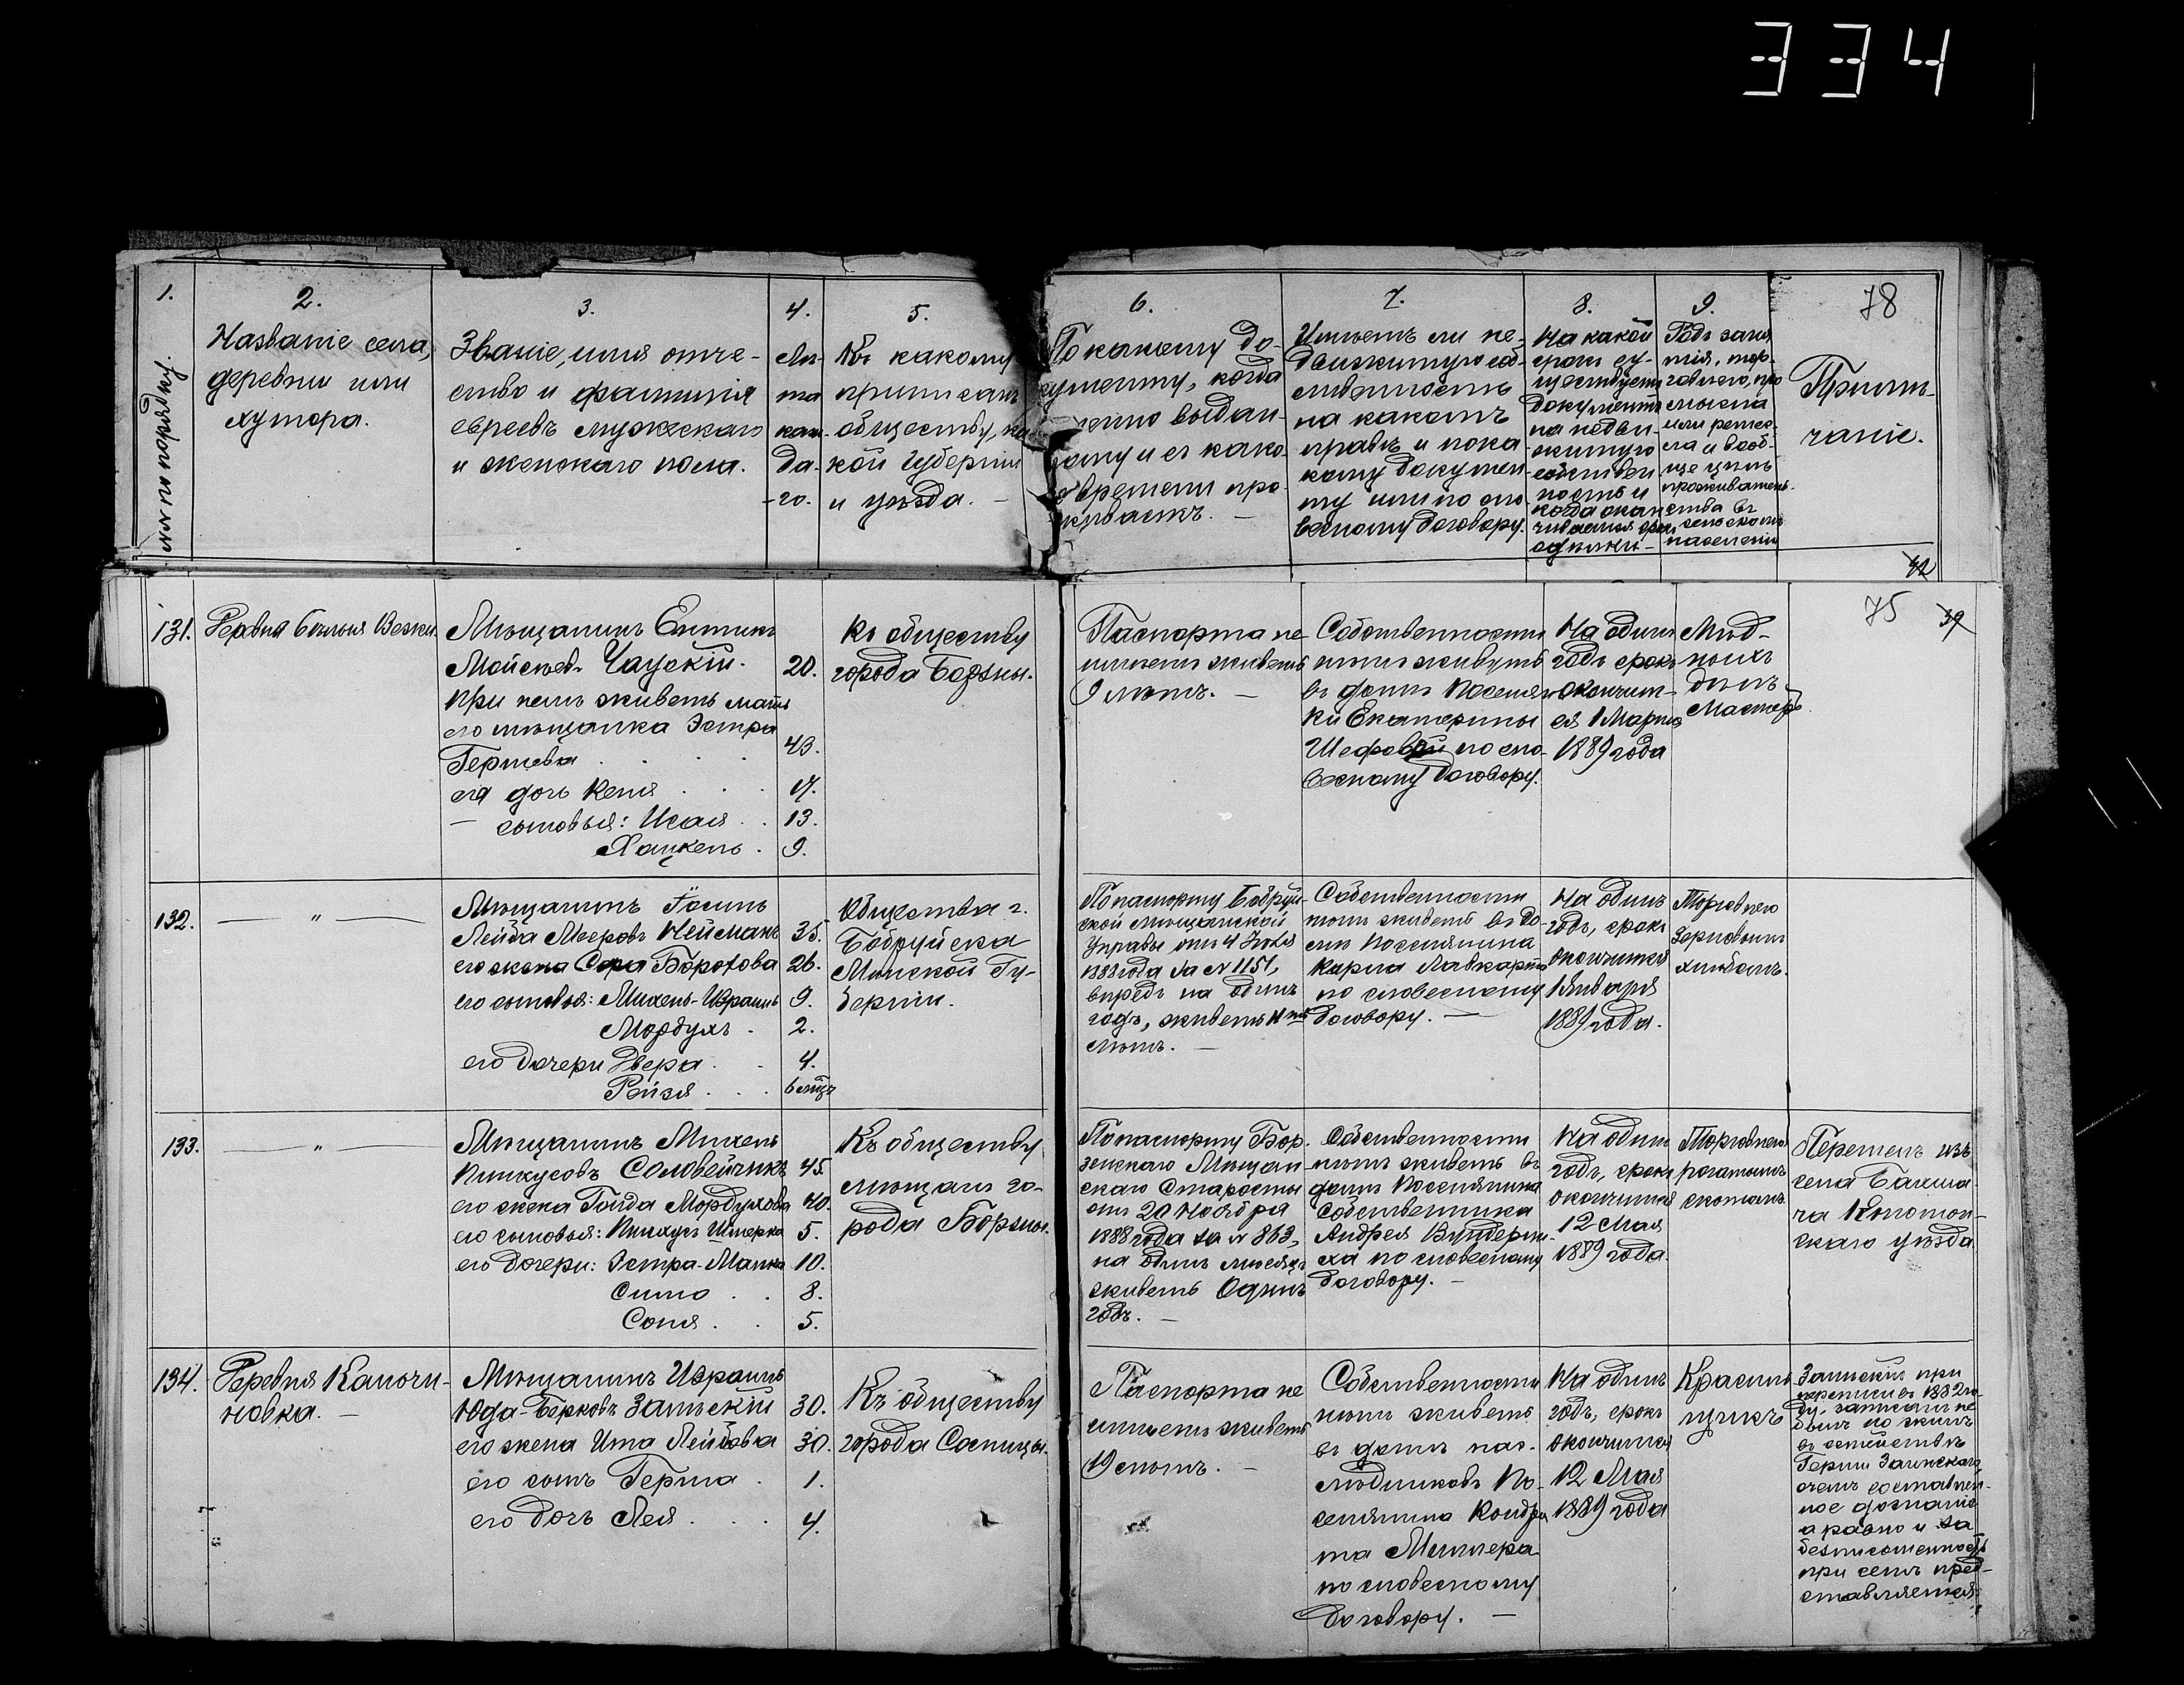 334
1.
№№ по порядку.
2.
Названіе села,
деревни или
хутора.
3.
Званіе, имя отче-
ство и фамилія
евреевъ мужскаго
и женскаго пола.
4.
Лѣ-
та
каж-
да-
го.
5.
Къ какому
приписанъ
обществу, ка
кой губерніи
и уѣзда. —
6.
По какому до-
кументу, когда
выдан-
ному и съ како
времени про-
живаетъ. —
7.
Имѣетъ ли не-
движимую соб-
ственность
на какомъ
правѣ и пока
кому докумен
ту или по сло-
весному договору.
8.
На какой
срокъ су-
ществуетъ
документъ
на недви-
жимую
собствен
ность и
когда окан
чивается срокъ
9.
Родъ заня
тія, тор-
говлею, про
мысла
или ремес-
ла и вооб-
ще цѣль
проживатель-
ства въ
сельскомъ
населеніи
78
Примѣ-
чаніе.
42
75 39
131.
Деревня Бѣлыя Вежи.
Мѣщанинъ
Мойсеевъ Чаускій. 20.
при немъ живетъ мать
его мѣщанка Эстра
Гершева . . . . 43.
ея дочь Кеня . . . 17.
— сыновья: Исая . . 13.
Хацкель . 9.
Къ обществу
города Борзны.
Паспорта не
имѣетъ живетъ
9 лѣтъ. —
Собственности
нѣтъ живутъ
въ домѣ поселян
ки Екатерины
Шефовой по сло-
весному договору.
На одинъ
годъ срокъ
окончит-
ся 1 Марта
1889 года
Мѣд-
ныхъ
дѣлъ
Мастеръ.
132.
— „ —
Мѣщанинъ Іосинъ
Лейба Мееровъ Нейманъ 35.
его жена Сора Борохова 26.
его сыновья: Михель-Израиль 9.
Мордухъ . 2.
его дочери Двера . . 4.
Рейзя . . . 6 мѣсц.
Общества г.
Бобруйска
Минской Гу-
берніи.
По паспорту Бобруй-
ской мѣщанской
Управы отъ 4 Іюля
1888 года за № 1151,
впредь на одинъ
годъ, живетъ
лѣтъ. —
Собственности
нѣтъ живетъ въ до-
мѣ поселянина
Карла
по словесному
договору. —
На одинъ
годъ, срокъ
окончится
1 Января
1889 года.
Торговлею
зерновымъ
хлѣбомъ.
133.
— „ —
Мѣщанинъ Михель
Пинхусовъ Соловейчикъ 45.
его жена Гинда Мордухова 40.
его сыновья: Пинхусъ Шмерка 5.
его дочери: Эстра-Малка 10.
Симо . . 8.
Соня . . 5.
Къ обществу
мѣщанъ го-
рода Борзны.
По паспорту Бор-
зенскаго Мѣщан-
скаго Старосты
отъ 20 Ноября
1888 года за № 863,
на одинъ мѣсяцъ
живетъ Одинъ
годъ. —
Собственности
нѣтъ живетъ въ
домѣ поселянина
собственника
Андрея
ха по словесному
договору. —
На одинъ
годъ, срокъ
окончится
12 Мая
1889 года.
Торговлею
рогатымъ
скотомъ.
Перешелъ изъ
села Бахма-
ча Конотоп-
скаго уѣзда
134.
Деревня Калочи-
новка. —
Мѣщанинъ Израиль
Юда-Берковъ Залѣскій 30.
его жена Ита Лейбовна 30.
его сынъ Герша . 1.
его дочь Лея . . . 4.
Къ обществу
города Сосницы.
Паспорта не
имѣетъ живетъ
19 лѣтъ. —
Собственности
нѣтъ живетъ
въ домѣ нас-
лѣдниковъ по-
селянина Кондра
та Миллера
по словесному
договору. —
На одинъ
годъ, срокъ
окончится
12 Мая
1889 года
Красиль
щикъ
Залѣскій при
переписи въ 1882 го
ду, записанъ не
былъ но жилъ
въ семействѣ
Герши Залѣскаго,
о чемъ составлен-
ное дознаніе
а равно и за
безписьменность
при семъ пред-
ставляется.